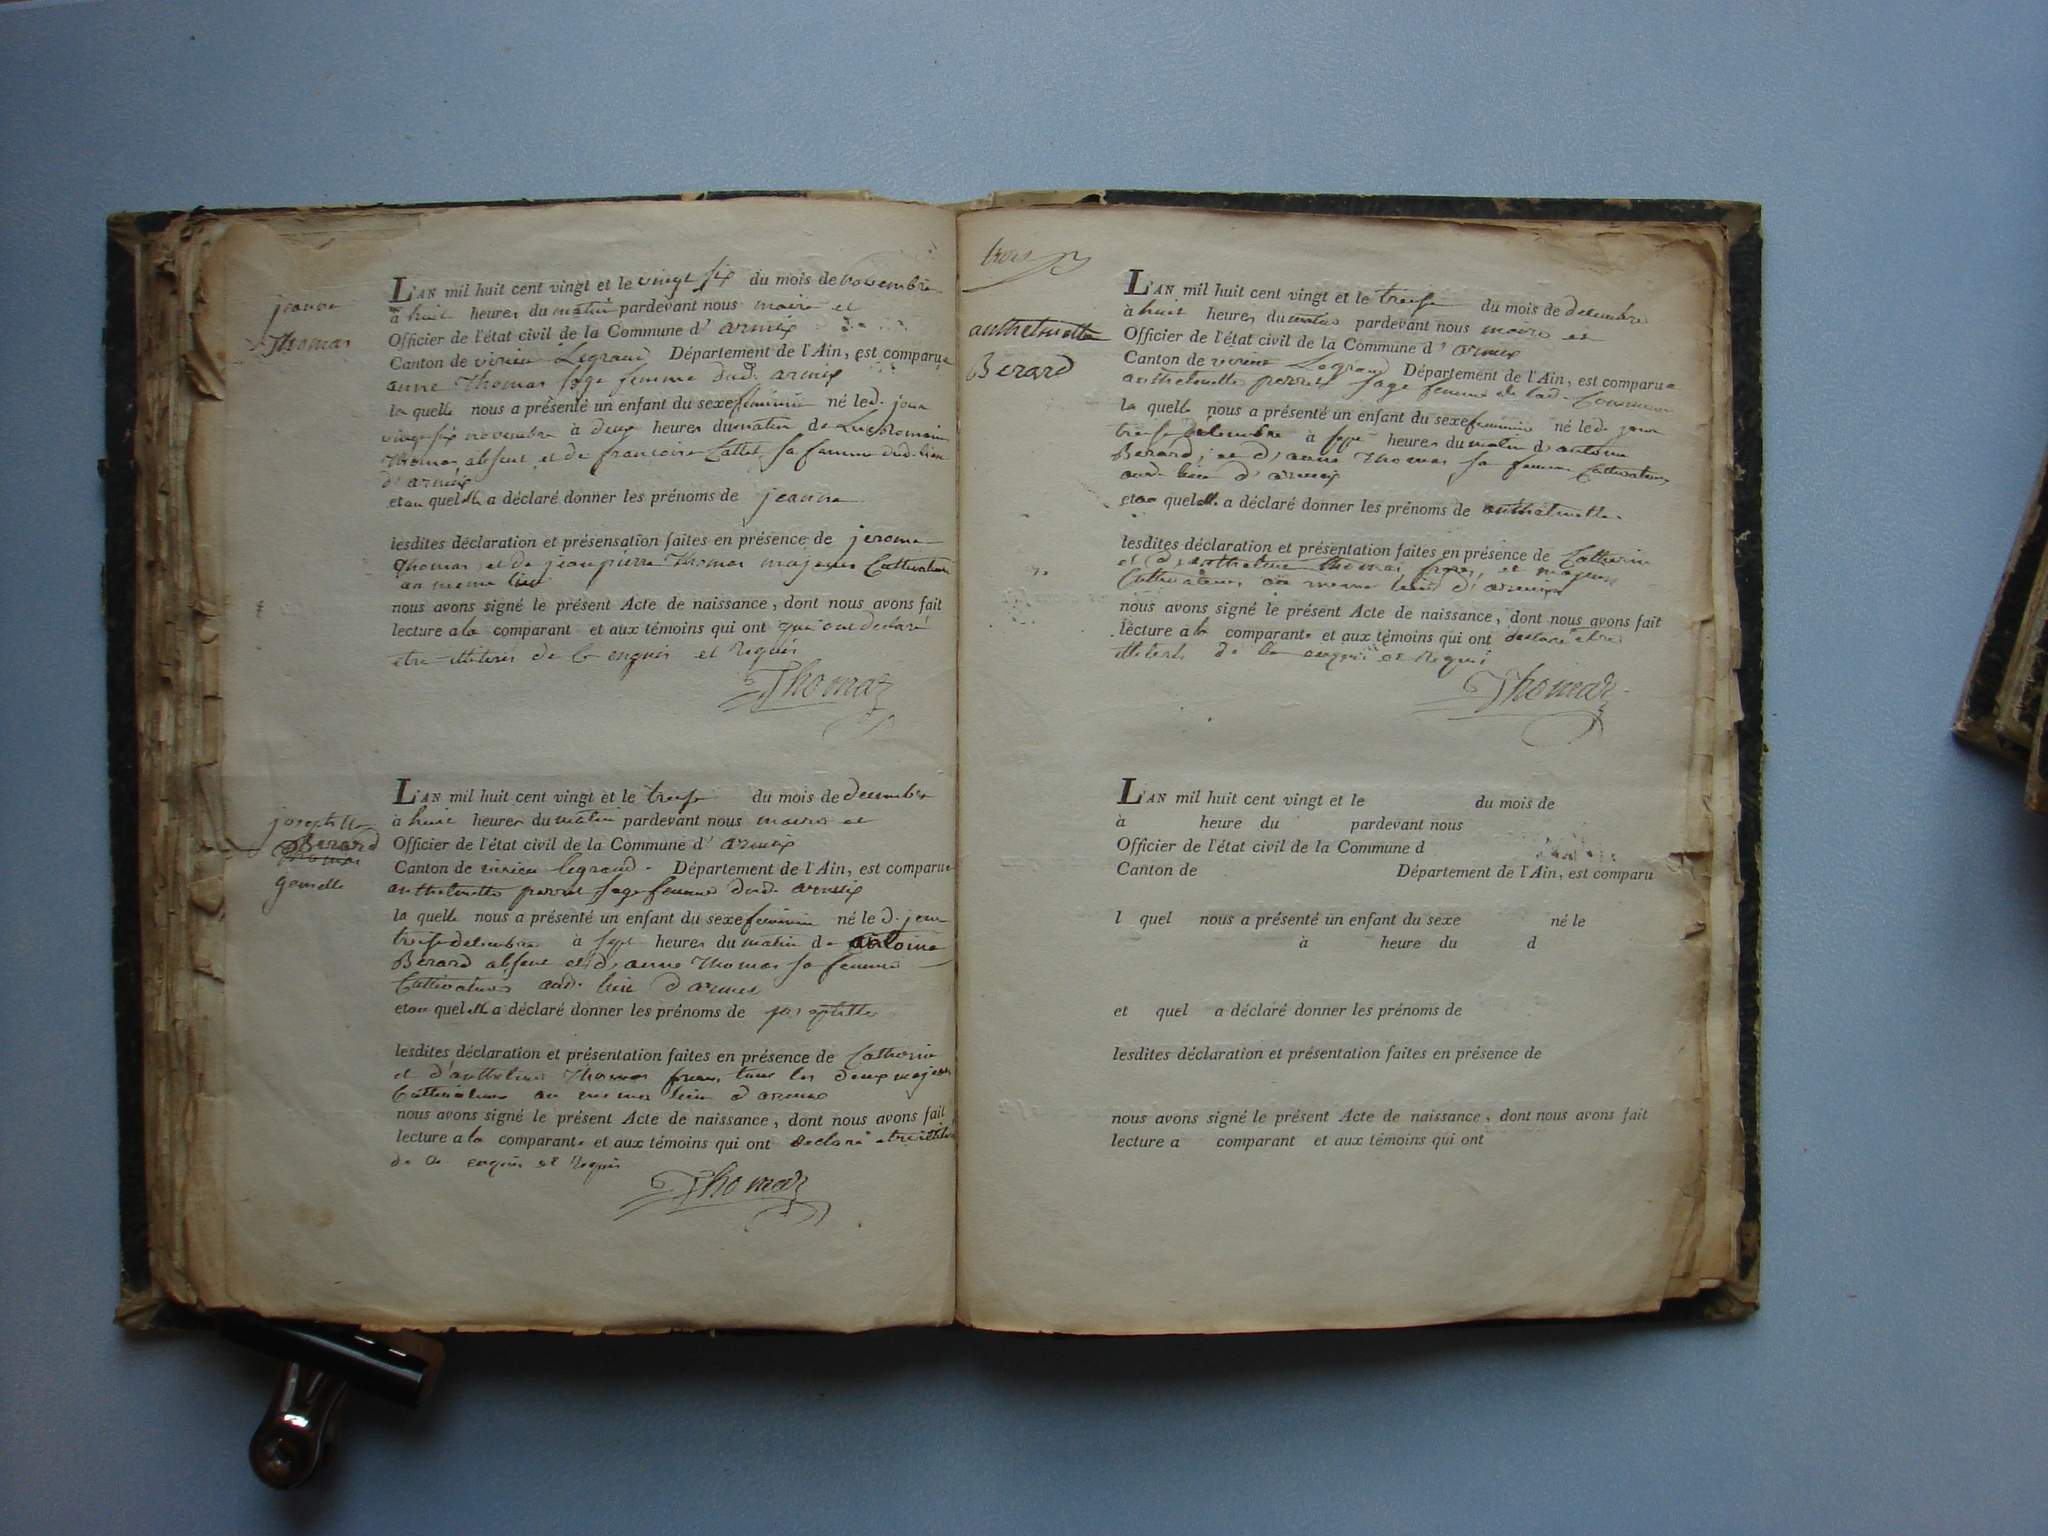 jeanne
Thomas
L'AN mil huit cent vingt et le vingt six du mois de novembre
à huit heures du matin pardevant nous maire et
Officier de l'état civil de la Commune d' armix
Canton de virieu Legrand Département de l'Ain, est comparue
anne Thomas sage femme dud. armix
la quelle nous a présenté un enfant du sexe feminin né le d. jour
vingt six novembre à deux heures du matin de Romain
Thomas absent et de francoise Cattet sa famme dud. lieu
d'armix
et au quel elle a déclaré donner les prénoms de jeanne
lesdites déclaration et présensation faites en présence de jerome
Thomas et de jean pierre Thomas majeurs Cultivateurs
au meme lieu
nous avons signé le présent Acte de naissance, dont nous avons fait
lecture a la comparant et aux témoins qui ont qui ont declaré
etre illiterés de ce enquis et requis
Thomas
josephtte
Berard
Thomas
gemelle
L'AN mil huit cent vingt et le treise du mois de decembre
à huit heures du matin pardevant nous maire et
Officier de l'état civil de la Commune d' armix
Canton de virieu legrand Département de l'Ain, est comparue
anthelmette perret sage femme dud. armix
la quelle nous a présenté un enfant du sexe feminin né le d. jour
treise decembre à sept heures du matin de antoine
Berard absent et d'anne Thomas sa femme
Cultivateurs aud. lieu d'armix
et au quel elle a déclaré donner les prénoms de josephtte
lesdites déclaration et présentation faites en présence de Catherin
et d'anthelme Thomas freres tous les deux majeurs
Cultivateurs au meme lieu d'armix
nous avons signé le présent Acte de naissance, dont nous avons fait
lecture a la comparante et aux témoins qui ont declaré etre
de ce enquis et requis
Thomas
trois
anthelmette
Berard
L'AN mil huit cent vingt et le treise du mois de decembre
à huit heures du matin pardevant nous maire et
Officier de l'état civil de la Commune d' armix
Canton de virieu Legrand Département de l'Ain, est comparue
anthelmette perret sage femme de lad. Commune
la quelle nous a présenté un enfant du sexe feminin né le d. jour
treise decembre à sept heures du matin d'antoine
Berard, et d'anne Thomas sa femme Cultivateurs
aud. lieu d'armix
et au quel elle a déclaré donner les prénoms de anthelmette
lesdites déclaration et présentation faites en présence de Catherin
et d'anthelme Thomas freres et majeurs
Cultivateurs au meme lieu d'armix
nous avons signé le présent Acte de naissance, dont nous avons fait
lecture a la comparante et aux témoins qui ont declaré etre
illiterés de ce enquis et requis
Thomas
L'AN mil huit cent vingt et le du mois de
à heure du pardevant nous
Officier de l'état civil de la Commune d
Canton de Département de l'Ain, est comparu
l quel nous a présenté un enfant du sexe né le
à heure du d
et quel a déclaré donner les prénoms de
lesdites déclaration et présentation faites en présence de
nous avons signé le présent Acte de naissance, dont nous avons fait
lecture a comparant et aux témoins qui ont